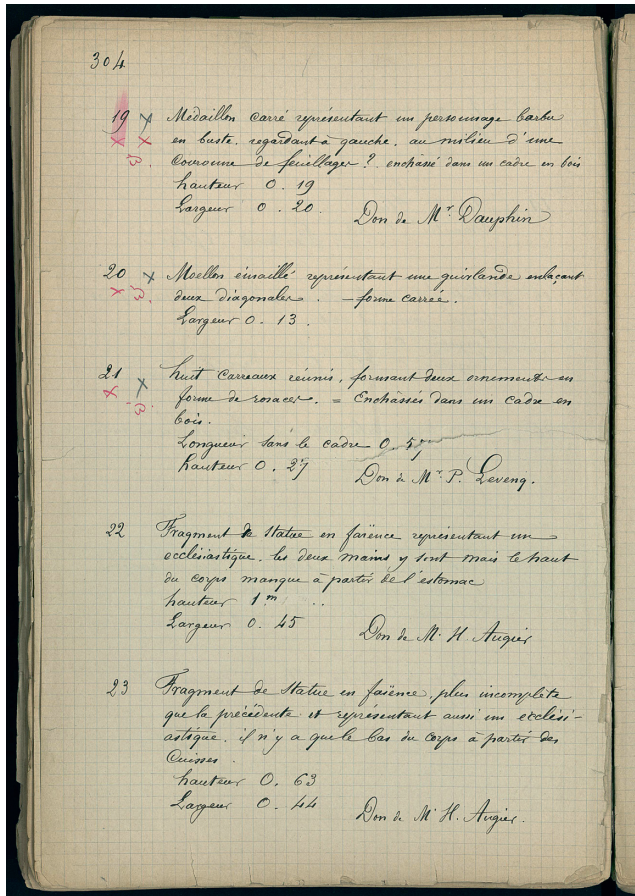 304
19 Médaillon carré représentant un personnage barbu
en buste, regardant à gauche, au milieu d'une
Couronne de feuillages ? enchassé dans un cadre en bois
hauteur 0.19
Largeur 0.20. Don de Mr. Dauphin
20 Moellon émaillé représentant une guirlande enlaçant
deux diagonales. — forme carrée.
Largeur 0.13.
21 huit carreaux réunis, formant deux ornements en
forme de rosaces. = Enchâssés dans un cadre en
bois.
Longueur sans le cadre 0.57
hauteur 0.27 Don de Mr. P. Leveng.
22 Fragment de Statue en faïence représentant un
ecclésiastique. les deux mains y sont mais le haut
du corps manque à partir de l'estomac
hauteur 1m ..
Largeur 0.45 Don de M. H. Augier
23 Fragment de Statue en faïence, plus incomplète
que la précédente et représentant aussi un ecclési-
astique. il n'y a que le bas du corps à partir des
Cuisses.
hauteur 0.63
Largeur 0.44 Don de M. H. Augier.